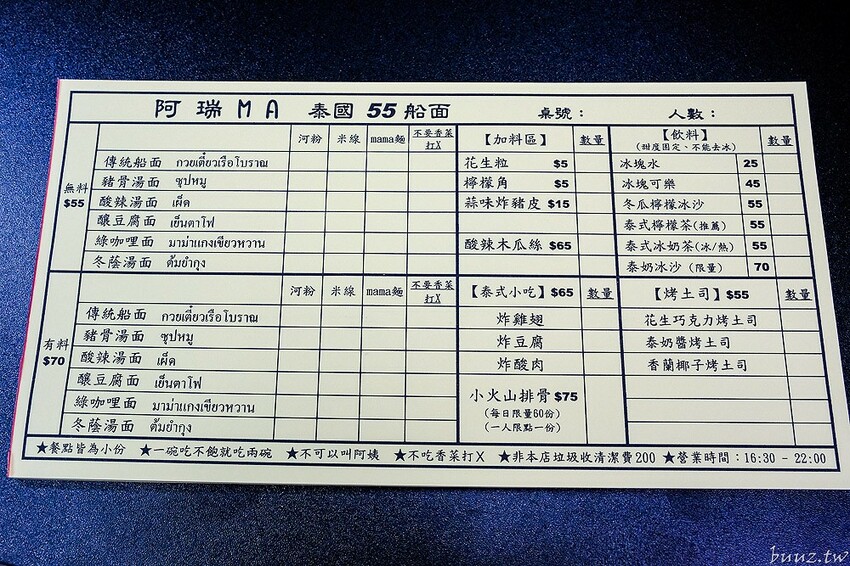 阿瑞MA 泰國 55 船面 桌號： 人數：
無料 $55
河粉 米線 mama麵 不要香菜打X
傳統船面 กวยเตี๋ยวเรือโบราณ
豬骨湯面 ซุปหมู
酸辣湯面 เผ็ด
釀豆腐面 เย็นตาโฟ
綠咖哩面 มาม่าแกงเขียวหวาน
冬蔭湯面 ต้มยำกุง
有料 $70
河粉 米線 mama麵 不要香菜打X
傳統船面 กวยเตี๋ยวเรือโบราณ
豬骨湯面 ซุปหมู
酸辣湯面 เผ็ด
釀豆腐面 เย็นตาโฟ
綠咖哩面 มาม่าแกงเขียวหวาน
冬蔭湯面 ต้มยำกุง
【加料區】 數量
花生粒 $5
檸檬角 $5
蒜味炸豬皮 $15
酸辣木瓜絲 $65
【飲料】 數量
(甜度固定、不能去冰)
冰塊水 25
冰塊可樂 45
冬瓜檸檬冰沙 55
泰式檸檬茶(推薦) 55
泰式冰奶茶(冰/熱) 55
泰奶冰沙 (限量) 70
【泰式小吃】$65 數量
炸雞翅
炸豆腐
炸酸肉
小火山排骨 $75
(每日限量60份)
(一人限點一份)
【烤土司】$55 數量
花生巧克力烤土司
泰奶醬烤土司
香蘭椰子烤土司
★餐點皆為小份 ★一碗吃不飽就吃兩碗 ★不可以叫阿姨 ★不吃香菜打X ★非本店垃圾收清潔費200 ★營業時間：16:30 - 22:00
buuz.tw